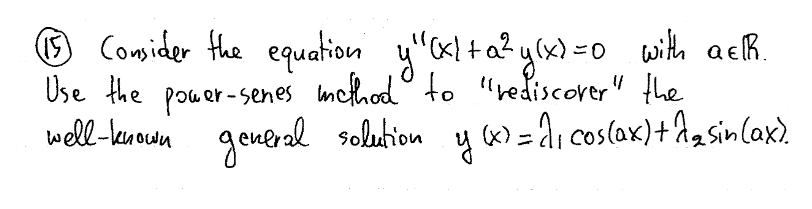 (15) Consider the equation y''(x) + a² y(x) = 0 with a∈ℝ.
Use the power-series method to "rediscover" the
well-known general solution y(x) = λ₁ cos(ax) + λ₂ sin(ax).